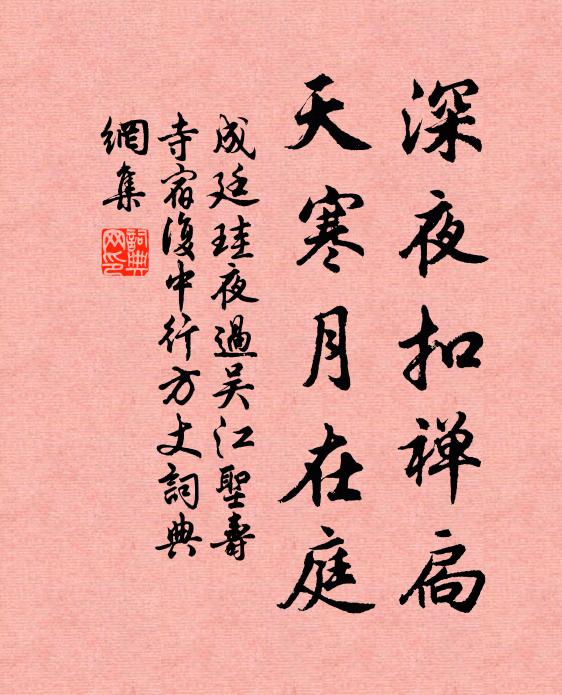 深夜扣禅扃
天寒月在庭
成廷珪夜過吴江聖壽
寺宿復中行方丈詞典
網集
詞典
网印